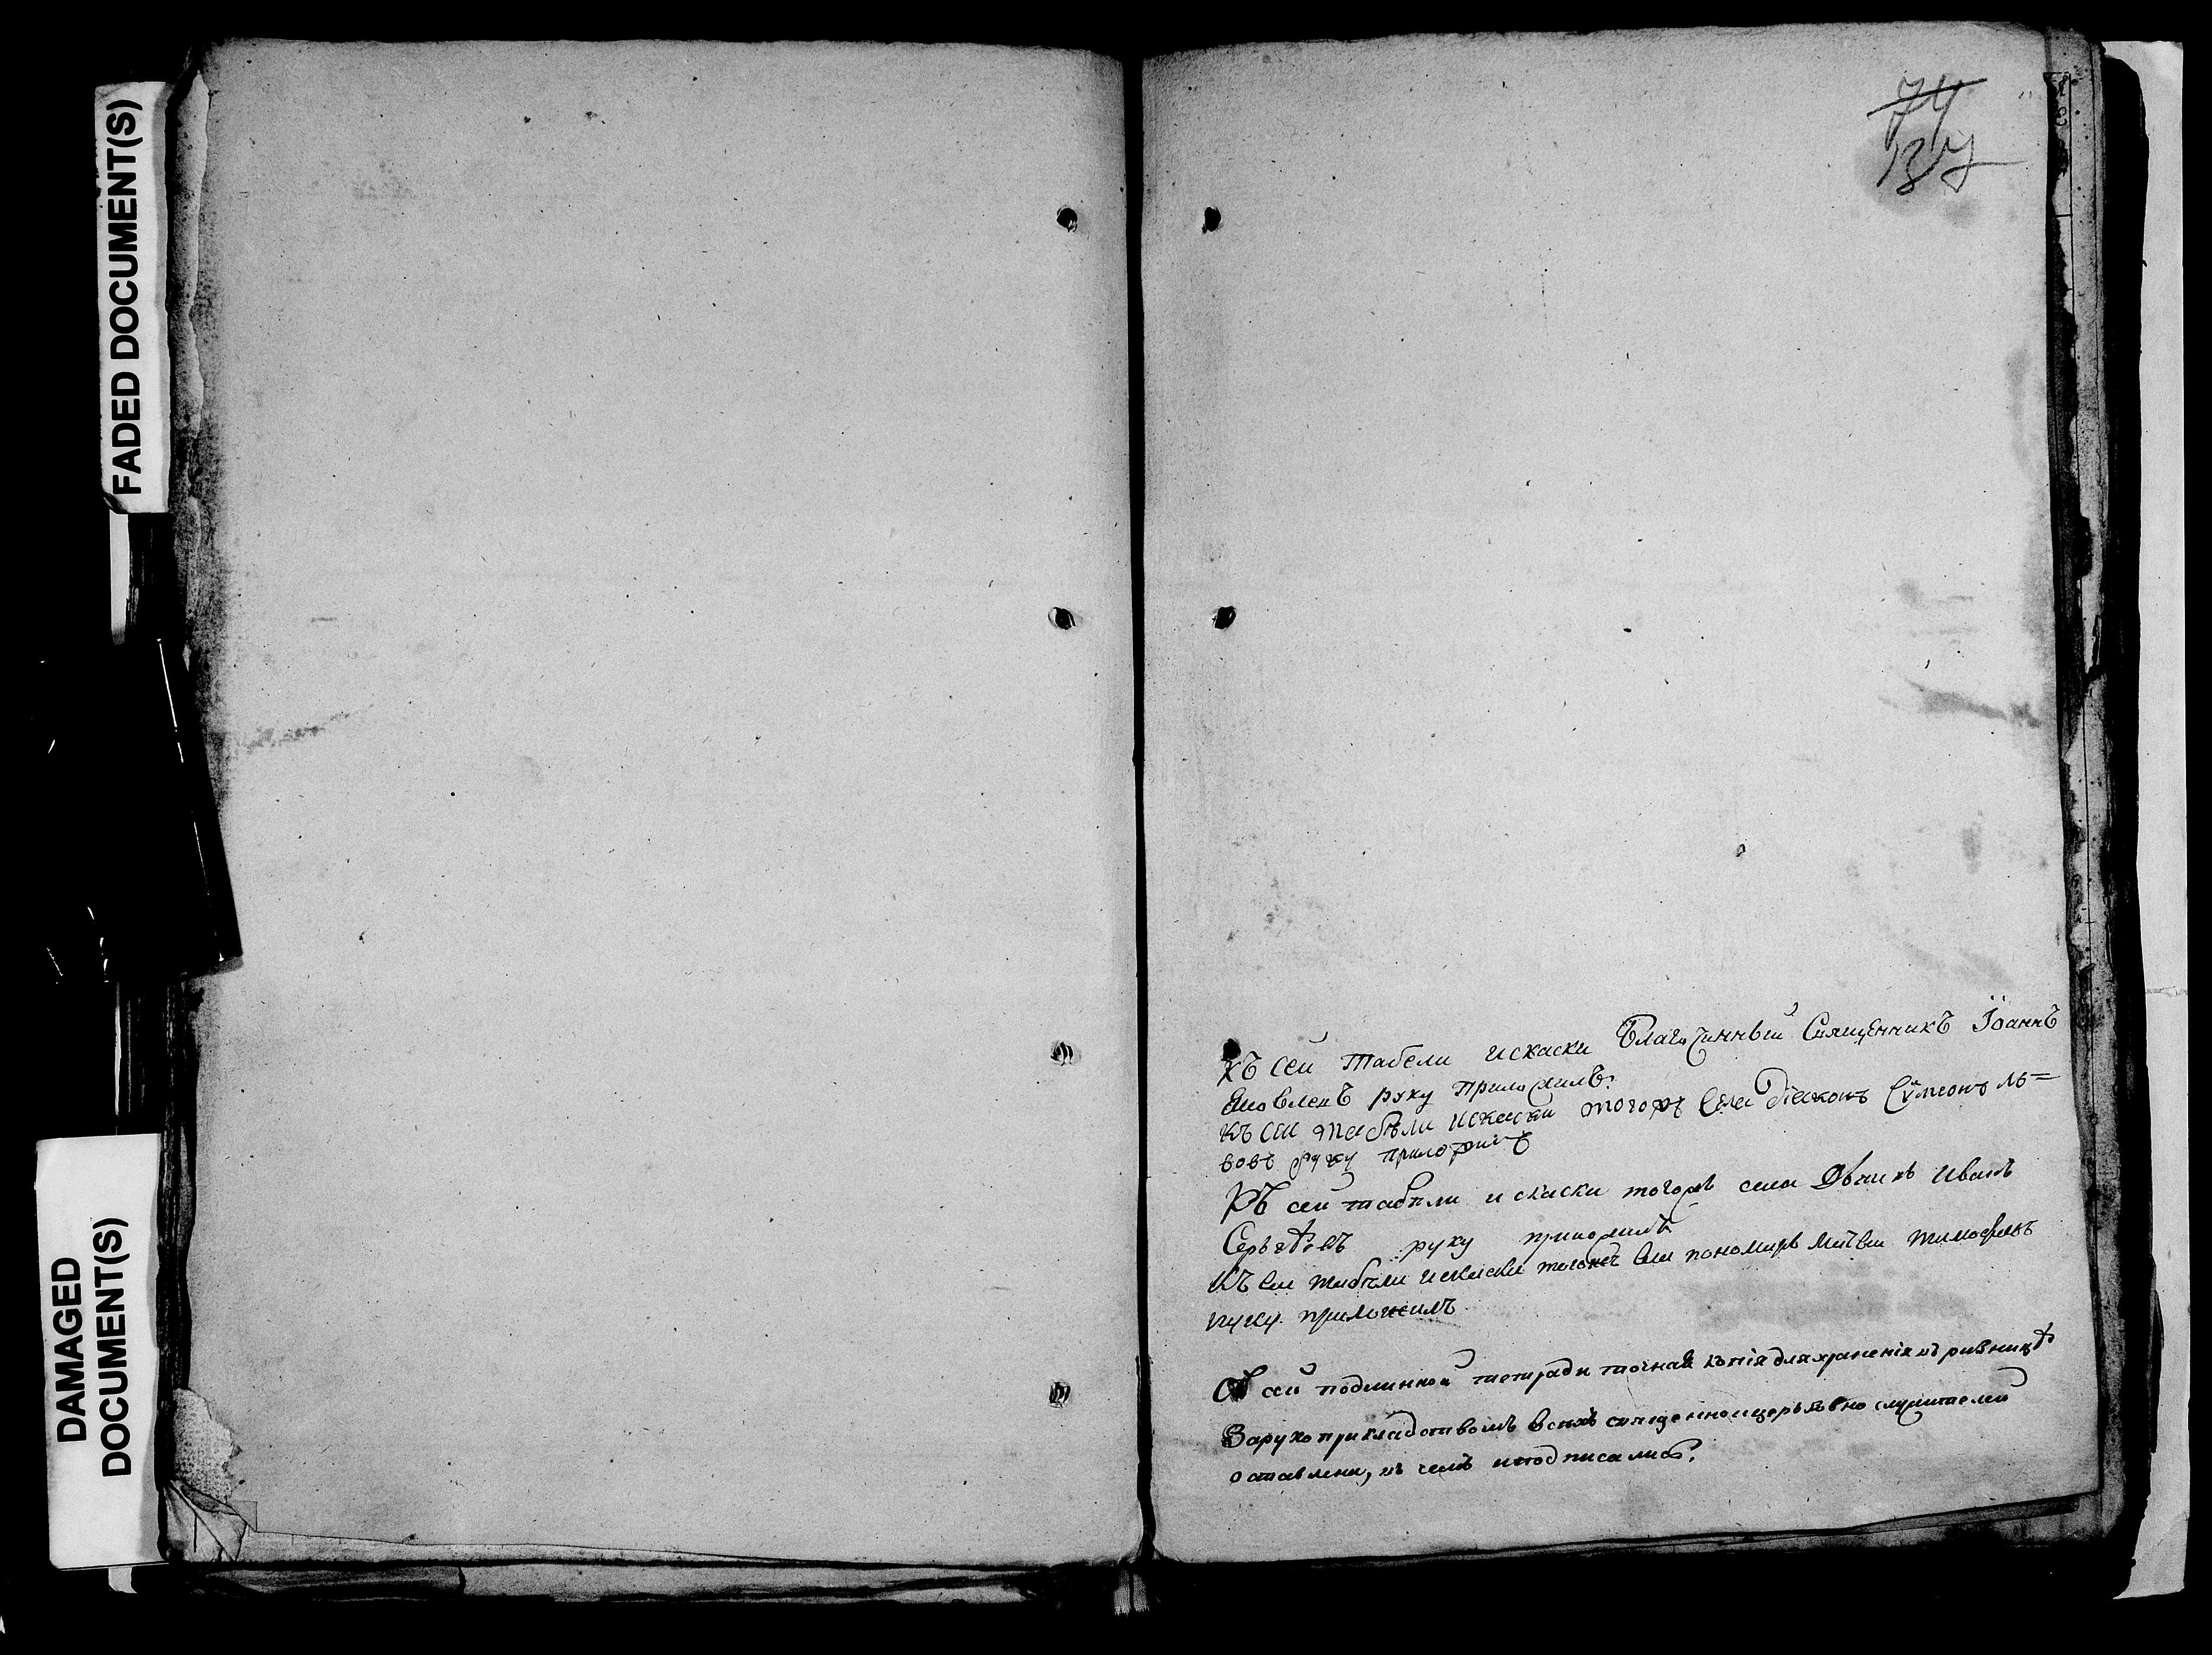 FADED DOCUMENT(S)
DAMAGED
DOCUMENT(S)
74
Къ сей табели искаски Благочинный Священникъ Їоаннъ
Яковлевъ руку приложилъ.
къ сеи табѣли искаски тогожъ села дїаконъ Сѵмеонъ Ль=
вовъ руку приложилъ
Къ сей табѣли искаски тогожъ села Дьячикъ Иванъ
Сергѣевъ руку приложилъ
Къ сеи табѣли искаски тогожъ села пономаръ Матвеи тимофѣевъ
руку приложилъ
Съ сей подлинной тетради точная копія для храненія въ ризницѣ
Зарукоприкладствомъ всехъ священноицерьковно служителей
оставлена, въ чемъ иподписались.